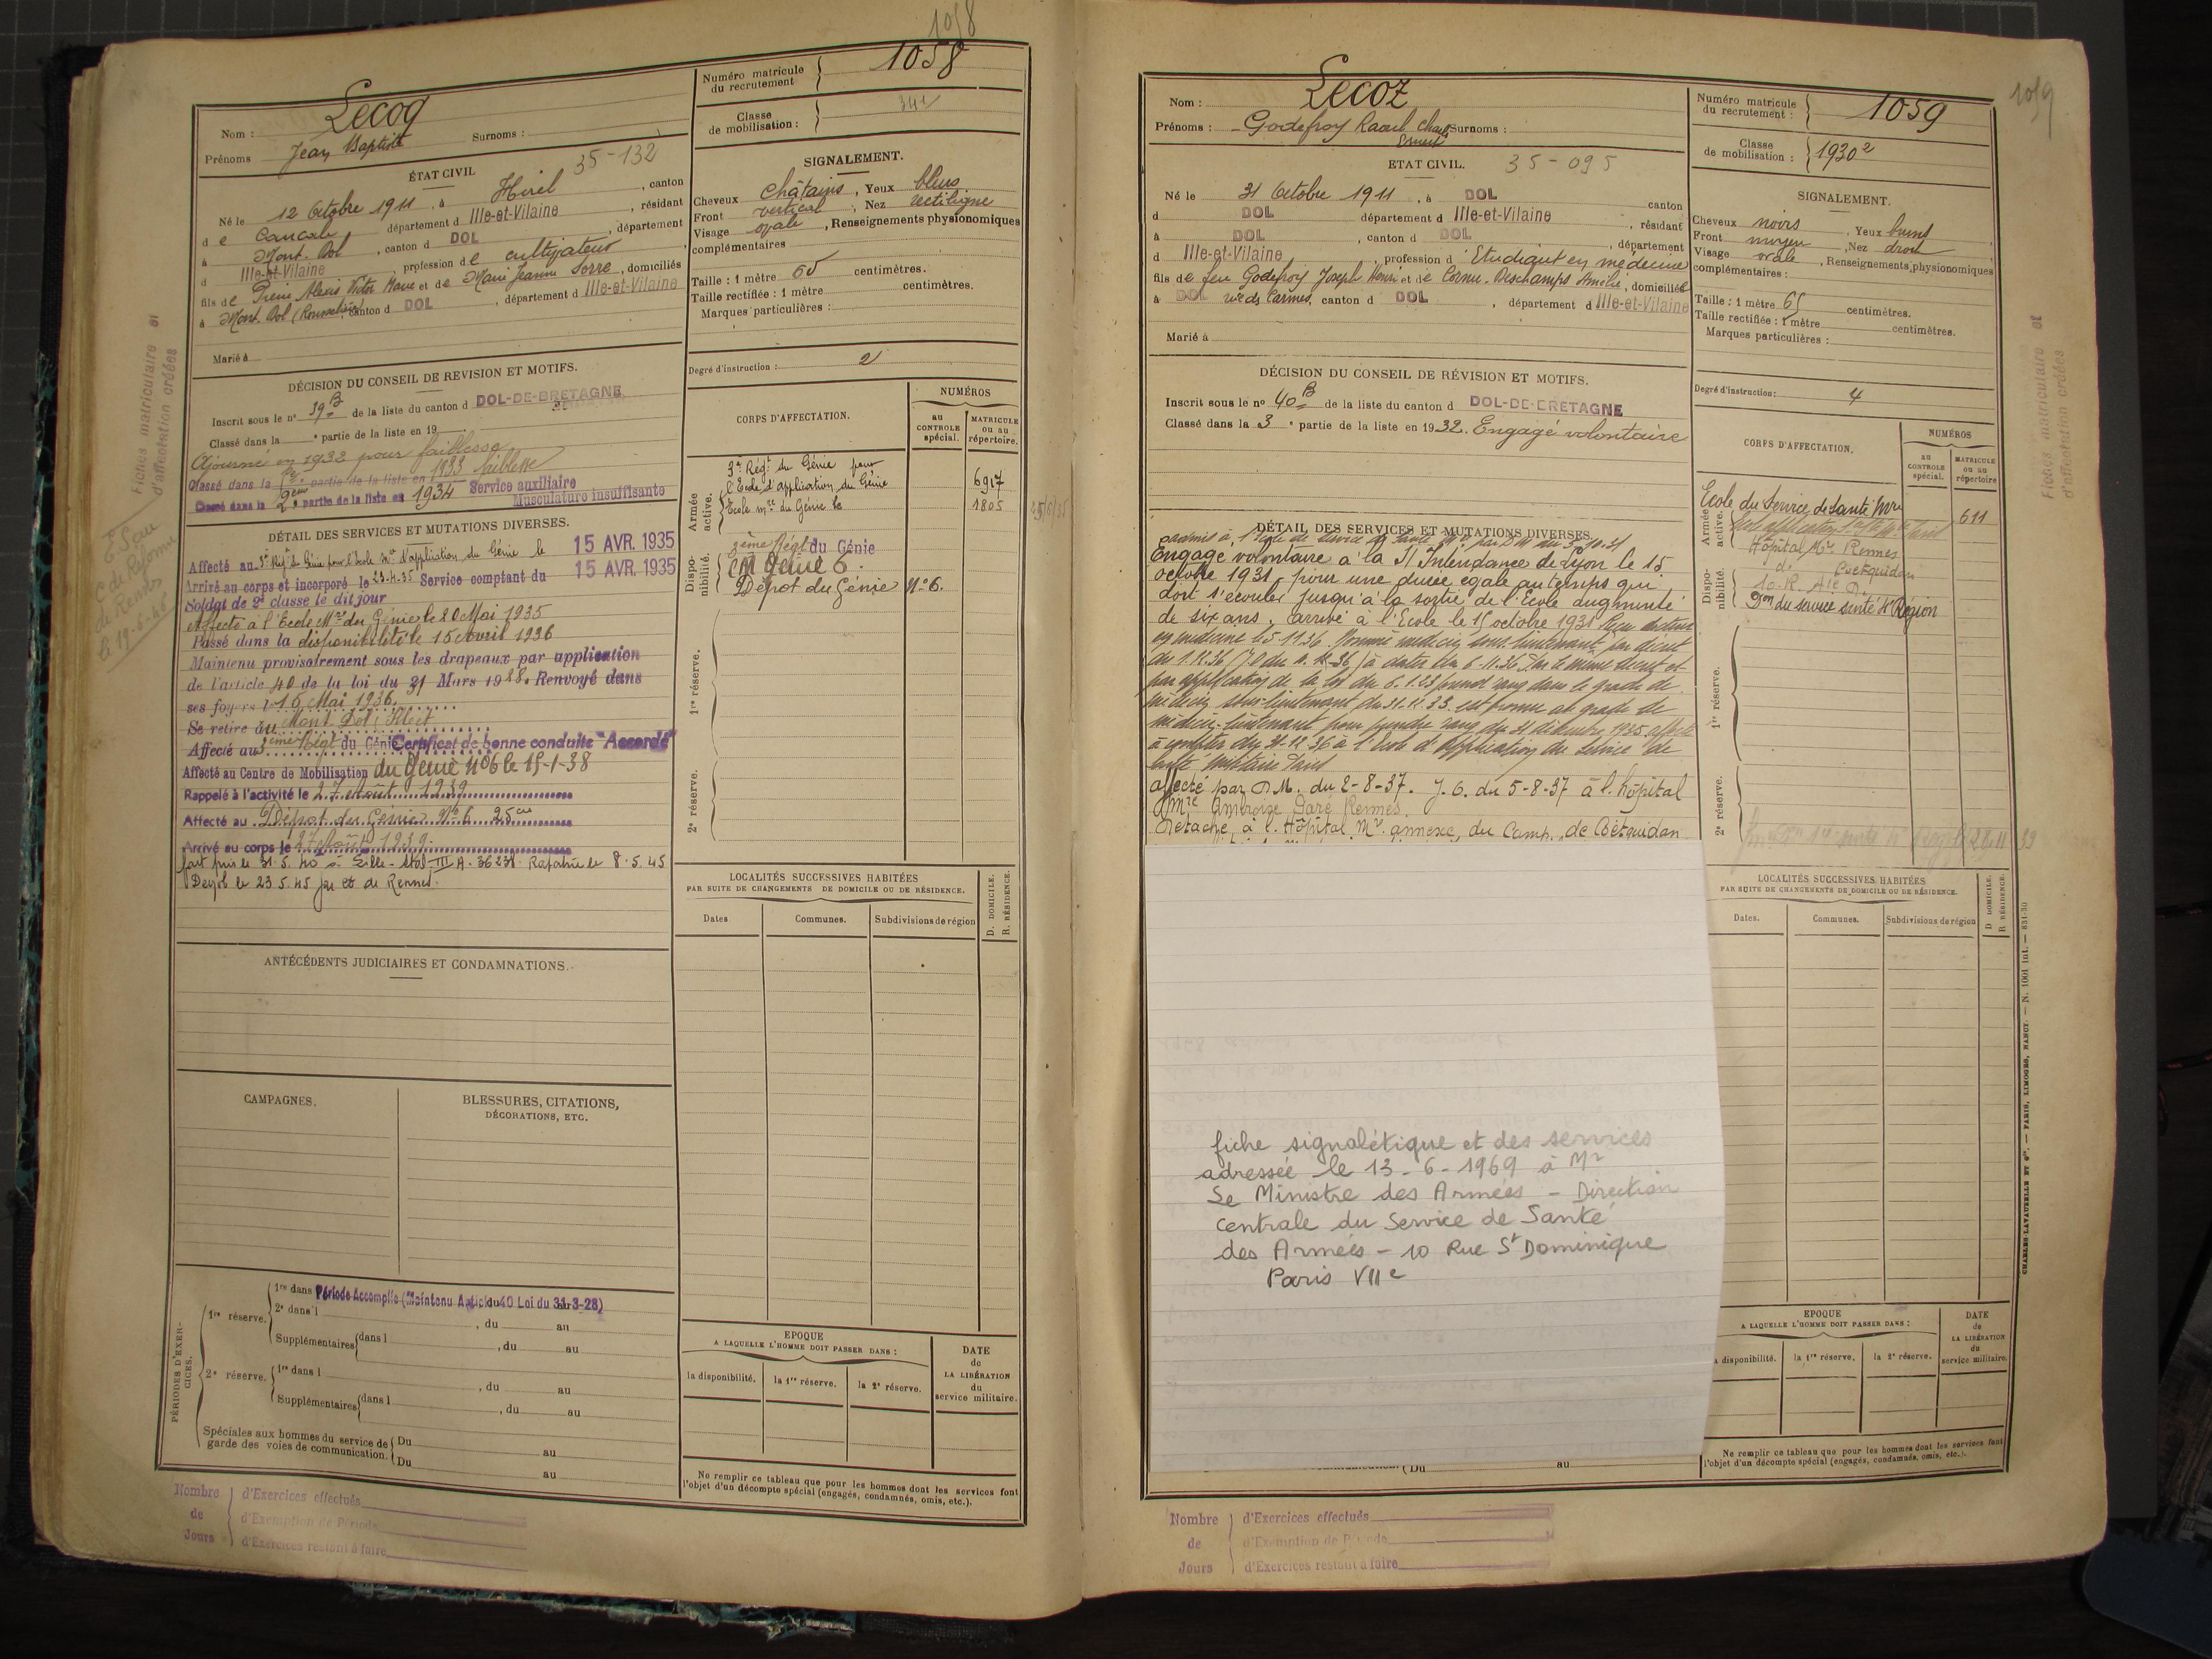 1058
Numéro matricule du recrutement } 1058
Nom : Lecoq
Surnoms :
Prénoms Jean Baptiste
Classe de mobilisation :
35-132
ÉTAT CIVIL
Né le 12 Octobre 1911, à Hirel, canton
de Cancale département d Ille-et-Vilaine, résidant
à Mont-Dol, canton d DOL, département
d Ille-et-Vilaine, profession de cultivateur
fils de Pierre Alexis Victor Marie et de Marie Jeanne Sorre, domiciliés
à Mont-Dol, canton d DOL, département d Ille-et-Vilaine
Marié à
SIGNALEMENT.
Cheveux châtains, Yeux bleus
Front vertical, Nez rectiligne
Visage ovale, Renseignements physionomiques
complémentaires
Taille : 1 mètre 65 centimètres.
Taille rectifiée : 1 mètre centimètres.
Marques particulières :
Degré d'instruction : 2
DÉCISION DU CONSEIL DE REVISION ET MOTIFS.
Inscrit sous le n° 39 B de la liste du canton d DOL-DE-BRETAGNE
Classé dans la e partie de la liste en 19
Ajourné en 1932 pour faiblesse
Classé dans la partie de la liste en 1933 faiblesse
Classé dans la 2e partie de la liste en 1934 Service auxiliaire
Musculature insuffisante
DÉTAIL DES SERVICES ET MUTATIONS DIVERSES.
Affecté au 3e Régt du Génie pour l'école Mre d'application du Génie le 15 AVR. 1935
Arrivé au corps et incorporé le 23-4-35 Service comptant du 15 AVR. 1935
Soldat de 2e classe le dit jour
Affecté à l'Ecole Mre du Génie le 20 Mai 1935
Passé dans la disponibilité le 15 Avril 1936
Maintenu provisoirement sous les drapeaux par application
de l'article 40 de la loi du 31 Mars 1928. Renvoyé dans
ses foyers le 16 Mai 1936.
Se retire au Mont Dol
Affecté au 3ème Régt du Génie Certificat de bonne conduite "Accordé"
Affecté au Centre de Mobilisation du Génie N°6 le 15-1-38
Rappelé à l'activité le 27 Août 1939
Affecté au Dépot du Génie N° 6 25 cie
Arrivé au corps le 27 Août 1939.
fait pris le 31.5.40 à Lille - Stal III A. 36231. Rapatrié le 8.5.45
Demob le 23.5.45 par de Rennes.
ANTÉCÉDENTS JUDICIAIRES ET CONDAMNATIONS.
CAMPAGNES.
BLESSURES, CITATIONS,
DÉCORATIONS, ETC.
PÉRIODES D'EXERCICES.
1re réserve. 1re dans Période Accomplie (Maintenu Article 40 Loi du 31-3-28)
2e dans l , du au
Supplémentaires dans l , du au
2e réserve. 1re dans l , du au
Supplémentaires dans l , du au
Spéciales aux hommes du service de garde des voies de communication. Du au
Du au
Nombre de Jours
d'Exercices effectués
d'Exemption de Période
d'Exercices restant à faire
CORPS D'AFFECTATION.
NUMÉROS
au CONTROLE spécial.
MATRICULE ou au répertoire.
Armée active.
3e Régt du Génie pour
l'Ecole d'application du Génie 6917
Ecole Mre du Génie le 1805
Disponibilité.
3ème Régt du Génie
CM Génie 6.
Dépot du Génie N° 6.
1re réserve.
2e réserve.
LOCALITÉS SUCCESSIVES HABITÉES
PAR SUITE DE CHANGEMENTS DE DOMICILE OU DE RÉSIDENCE.
Dates
Communes.
Subdivisions de région
D. DOMICILE.
R. RÉSIDENCE.
EPOQUE
A LAQUELLE L'HOMME DOIT PASSER DANS :
la disponibilité.
la 1re réserve.
la 2e réserve.
DATE de LA LIBÉRATION du service militaire.
Ne remplir ce tableau que pour les hommes dont les services font
l'objet d'un décompte spécial (engagés, condamnés, omis, etc.).
Fiches matriculaire et
d'affectation créées
C. de Réforme
de Rennes
le 19-6-45
1059
Nom : Lecoz
Prénoms : Godefroy Raoul Charles Ernest
Surnoms :
Numéro matricule du recrutement : } 1059
Classe de mobilisation : } 1930 2
ETAT CIVIL. 35-095
Né le 31 Octobre 1911, à DOL canton
d DOL département d Ille-et-Vilaine, résidant
à DOL, canton d DOL, département
d Ille-et-Vilaine, profession d Etudiant en médecine
fils de feu Godefroy Joseph Henri et de Cornu-Deschamps Amélie, domiciliés
à DOL rue des Carmes, canton d DOL, département d Ille-et-Vilaine
Marié à
SIGNALEMENT.
Cheveux noirs, Yeux bruns
Front moyen, Nez droit
Visage ovale, Renseignements physionomiques
complémentaires :
Taille : 1 mètre 65 centimètres.
Taille rectifiée : 1 mètre centimètres.
Marques particulières :
Degré d'instruction : 4
DÉCISION DU CONSEIL DE RÉVISION ET MOTIFS.
Inscrit sous le n° 40 B de la liste du canton d DOL-DE-BRETAGNE
Classé dans la 3e partie de la liste en 1932. Engagé volontaire
DÉTAIL DES SERVICES ET MUTATIONS DIVERSES.
admis à l'Ecole de service de Santé Mre par DM du 5.10.31
Engagé volontaire à la S/ Intendance de Lyon le 15
octobre 1931, pour une durée égale au temps qui
doit s'écouler jusqu'à la sortie de l'Ecole augmenté
de six ans, arrivé à l'Ecole le 15 octobre 1931 Reçu docteur
en médecine le 5.11.36. Nommé médecin sous-lieutenant par décret
du 1.12.36 à dater du 6-11-36 Par le même décret et
par application de la loi du 6.1.23 prend rang dans le grade de
médecin sous-lieutenant du 31.12.33. est promu au grade de
médecin-lieutenant pour prendre rang du 31 décembre 1935 affecté
à compter du 31-12-36 à l'Ecole d'application du service de
santé militaire Paris
affecté par D.M. du 2-8-37. J.O. du 5-8-37 à l'hôpital
Mre Ambroise Paré Rennes.
Détaché à l'Hôpital Mre annexe, du Camp de Coëtquidan
fiche signalétique et des services
adressée le 13-6-1969 à Mr
Le Ministre des Armées - Direction
centrale du Service de Santé
des Armées - 10 Rue St Dominique
Paris VIIe
(Du au
Nombre de Jours
d'Exercices effectués
d'Exemption de Période
d'Exercices restant à faire
CORPS D'AFFECTATION.
NUMÉROS
au CONTROLE spécial.
MATRICULE ou au répertoire
Armée active.
Ecole du Service de Santé Mre 611
Hôpital Mre Rennes
de Coëtquidan
Disponibilité.
Don du service santé 4e Région
1re réserve.
2e réserve.
LOCALITÉS SUCCESSIVES HABITÉES
PAR SUITE DE CHANGEMENTS DE DOMICILE OU DE RÉSIDENCE.
Dates.
Communes.
Subdivisions de région
D DOMICILE.
R RÉSIDENCE.
EPOQUE
A LAQUELLE L'HOMME DOIT PASSER DANS :
disponibilité.
la 1re réserve.
la 2e réserve.
DATE de LA LIBÉRATION du service militaire.
Ne remplir ce tableau que pour les hommes dont les services font
l'objet d'un décompte spécial (engagés, condamnés, omis, etc.).
Fiches matriculaire et
d'affectation créées
CHARLES-LAVAUZELLE ET Cie. — PARIS, LIMOGES, NANCY. — N. 1001 int. — 831-30